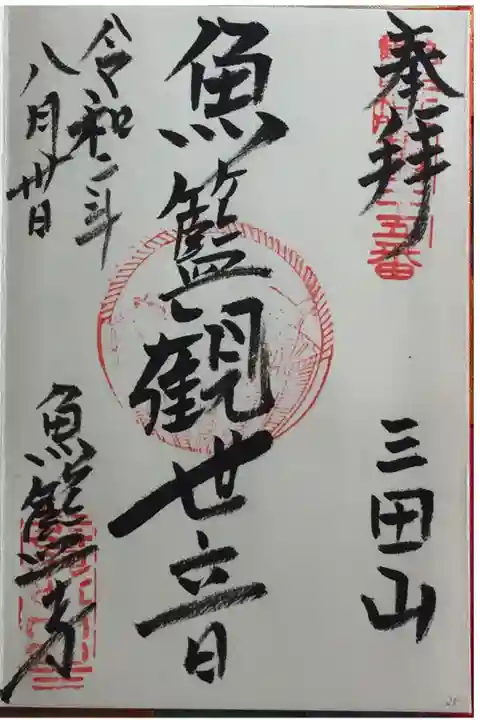 奉拝
五番
三田山
魚籃観世音
令和二年
八月廿日
魚籃寺